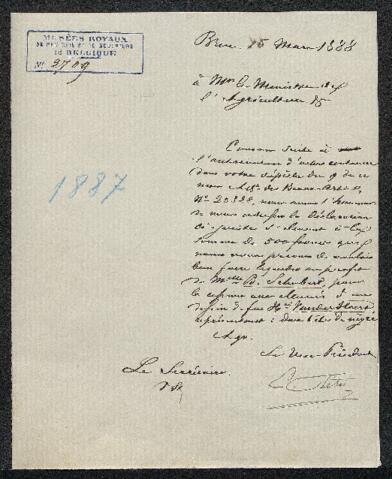 MUSÉES ROYAUX
DE PEINTURE ET DE SCULPTURE
DE BELGIQUE
N° 2709
Brux. 15 Mars 1888
à Mr le Ministre de
l'Agriculture &
1887
Comme suite à
l'autorisation d'achat contenue
dans votre dépêche du 9 de ce
mois Adon des Beaux-Arts
N° 20838, nous avons l'honneur
de vous adresser la déclaration
ci-jointe s'élevant à la
somme de 500 francs que
nous vous prions de vouloir
bien faire liquider au profit
de Melle B. Schubert, pour
le
dessin de feu Mr Vander Haert
représentant: deux têtes de nègre
Agr.
Le Vice-Président
Le Secrétaire